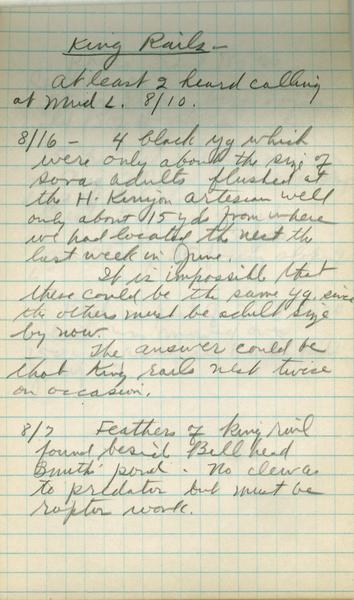 King Rails -
At least 2 heard calling
at Mud L. 8/10.
8/16 - 4 black yg which
were only about the size of
sora adults flushed at
the H. Kenyon artesian well
only about 15 yds from where
we had located the nest the
last week in June.
It is impossible that
these could be the same yg. since
the others must be adult size
by now.
The answer could be
that King rails nest twice
on occasion.
8/7 Feathers of king rail
found beside Bill head
Smith' pond. No clew as
to predator but must be
raptor work.